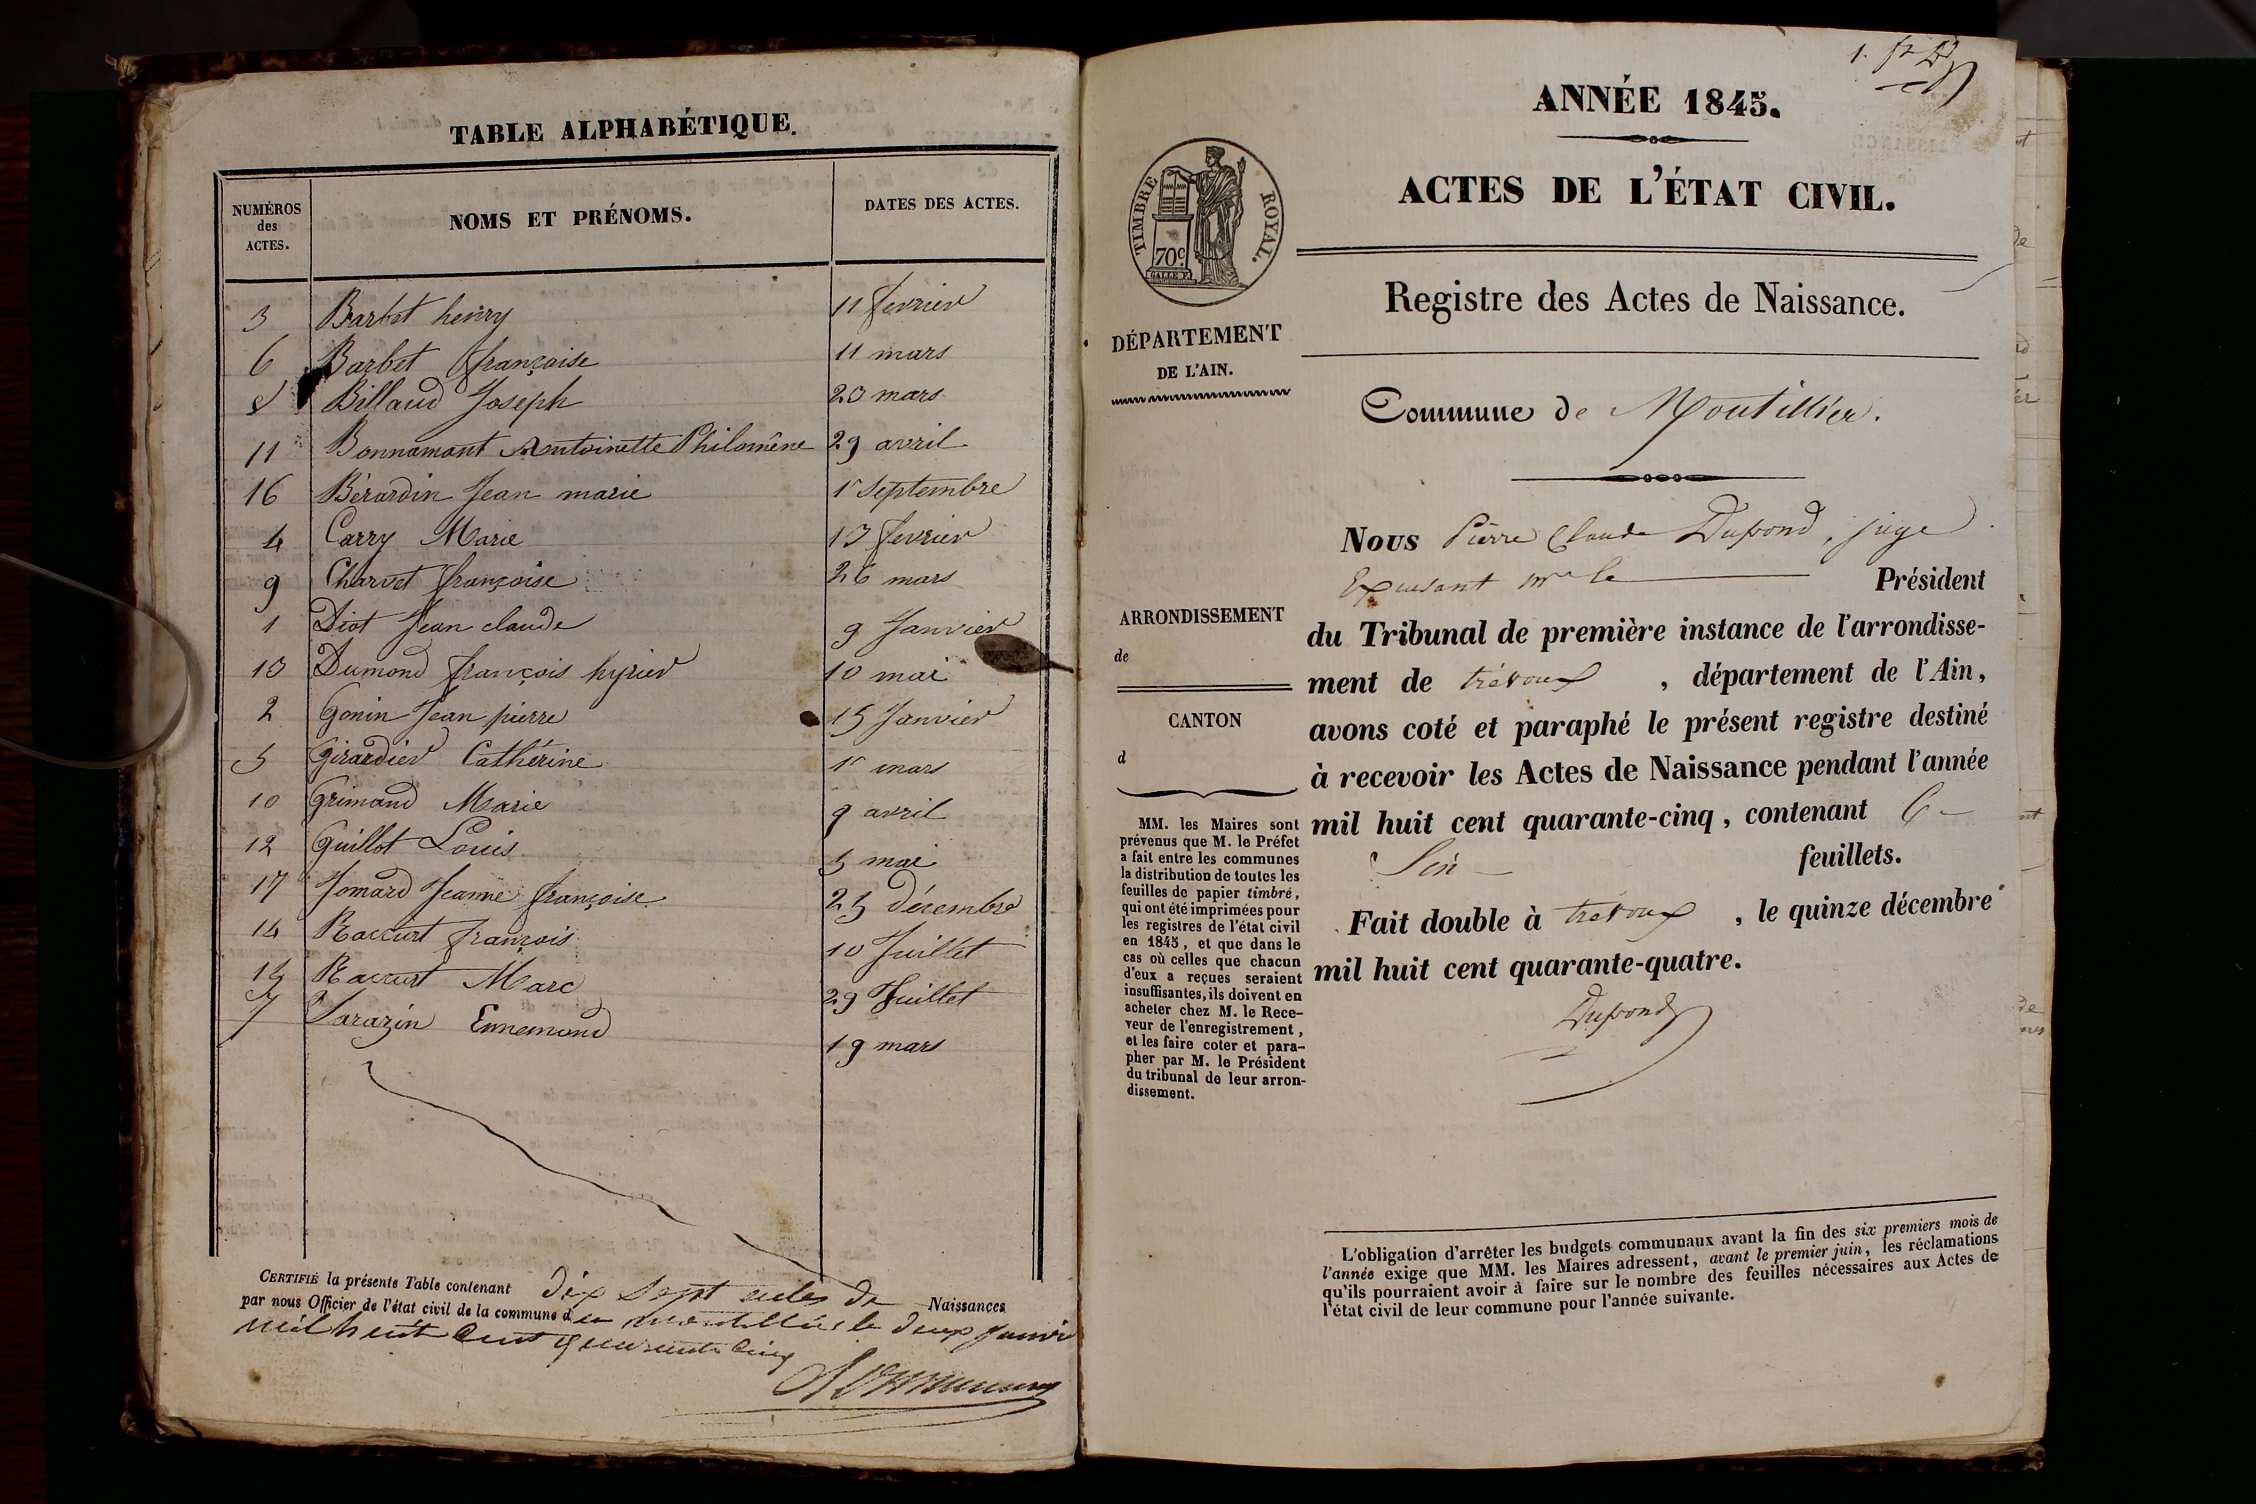 TABLE ALPHABÉTIQUE.
NUMÉROS
des
ACTES.
NOMS ET PRÉNOMS.
DATES DES ACTES.
3 Barbet henry 11 fevrier
6 Barbet françoise 11 mars
8 Billaud Joseph 20 mars
11 Bonnamont Antoinette Philomène 29 avril
16 Bérardin Jean marie 1r Septembre
4 Carry Marie 13 fevrier
9 Charvet françoise 26 mars
1 Diot Jean claude 9 Janvier
13 Dumond françois 10 mai
2 Gonin Jean pierre 15 Janvier
5 Girardier Cathérine 1r mars
10 Grimand Marie 9 avril
12 Guillot Louis 5 mai
17 Jomard Jeanne françoise 25 décembre
14 Raccurt françois 10 Juillet
15 Raccurt Marc 29 Juillet
7 Sarazin Ennemond 19 mars
CERTIFIÉ la présente Table contenant dix Sept actes de Naissances
par nous Officier de l'état civil de la commune de le deux Janvi
mil huit Cent quarante Cinq
1. fr
ANNÉE 1845.
ACTES DE L'ÉTAT CIVIL.
TIMBRE ROYAL.
70c.
Registre des Actes de Naissance.
DÉPARTEMENT
DE L'AIN.
Commune de Montillier.
Nous Pierre Claude Dupond, juge
Excusant mr le Président
ARRONDISSEMENT
de
CANTON
d
du Tribunal de première instance de l'arrondisse-
ment de trévoux, département de l'Ain,
avons coté et paraphé le présent registre destiné
à recevoir les Actes de Naissance pendant l'année
mil huit cent quarante-cinq, contenant 6
Six feuillets.
Fait double à trévoux, le quinze décembre
mil huit cent quarante-quatre.
Dupond
MM. les Maires sont
prévenus que M. le Préfet
a fait entre les communes
la distribution de toutes les
feuilles de papier timbré,
qui ont été imprimées pour
les registres de l'état civil
en 1845, et que dans le
cas où celles que chacun
d'eux a reçues seraient
insuffisantes, ils doivent en
acheter chez M. le Rece-
veur de l'enregistrement,
et les faire coter et para-
pher par M. le Président
du tribunal de leur arron-
dissement.
L'obligation d'arrêter les budgets communaux avant la fin des six premiers mois de
l'année exige que MM. les Maires adressent, avant le premier juin, les réclamations
qu'ils pourraient avoir à faire sur le nombre des feuilles nécessaires aux Actes de
l'état civil de leur commune pour l'année suivante.